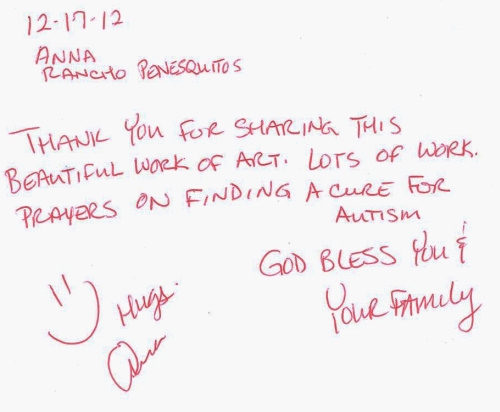 12-17-12
ANNA
RANCHO PENESQUITOS
THANK YOU FOR SHARING THIS
BEAUTIFUL WORK OF ART. LOTS OF WORK.
PRAYERS ON FINDING A CURE FOR
AUTISM
GOD BLESS YOU &
YOUR FAMILY
Hugs.
Anna